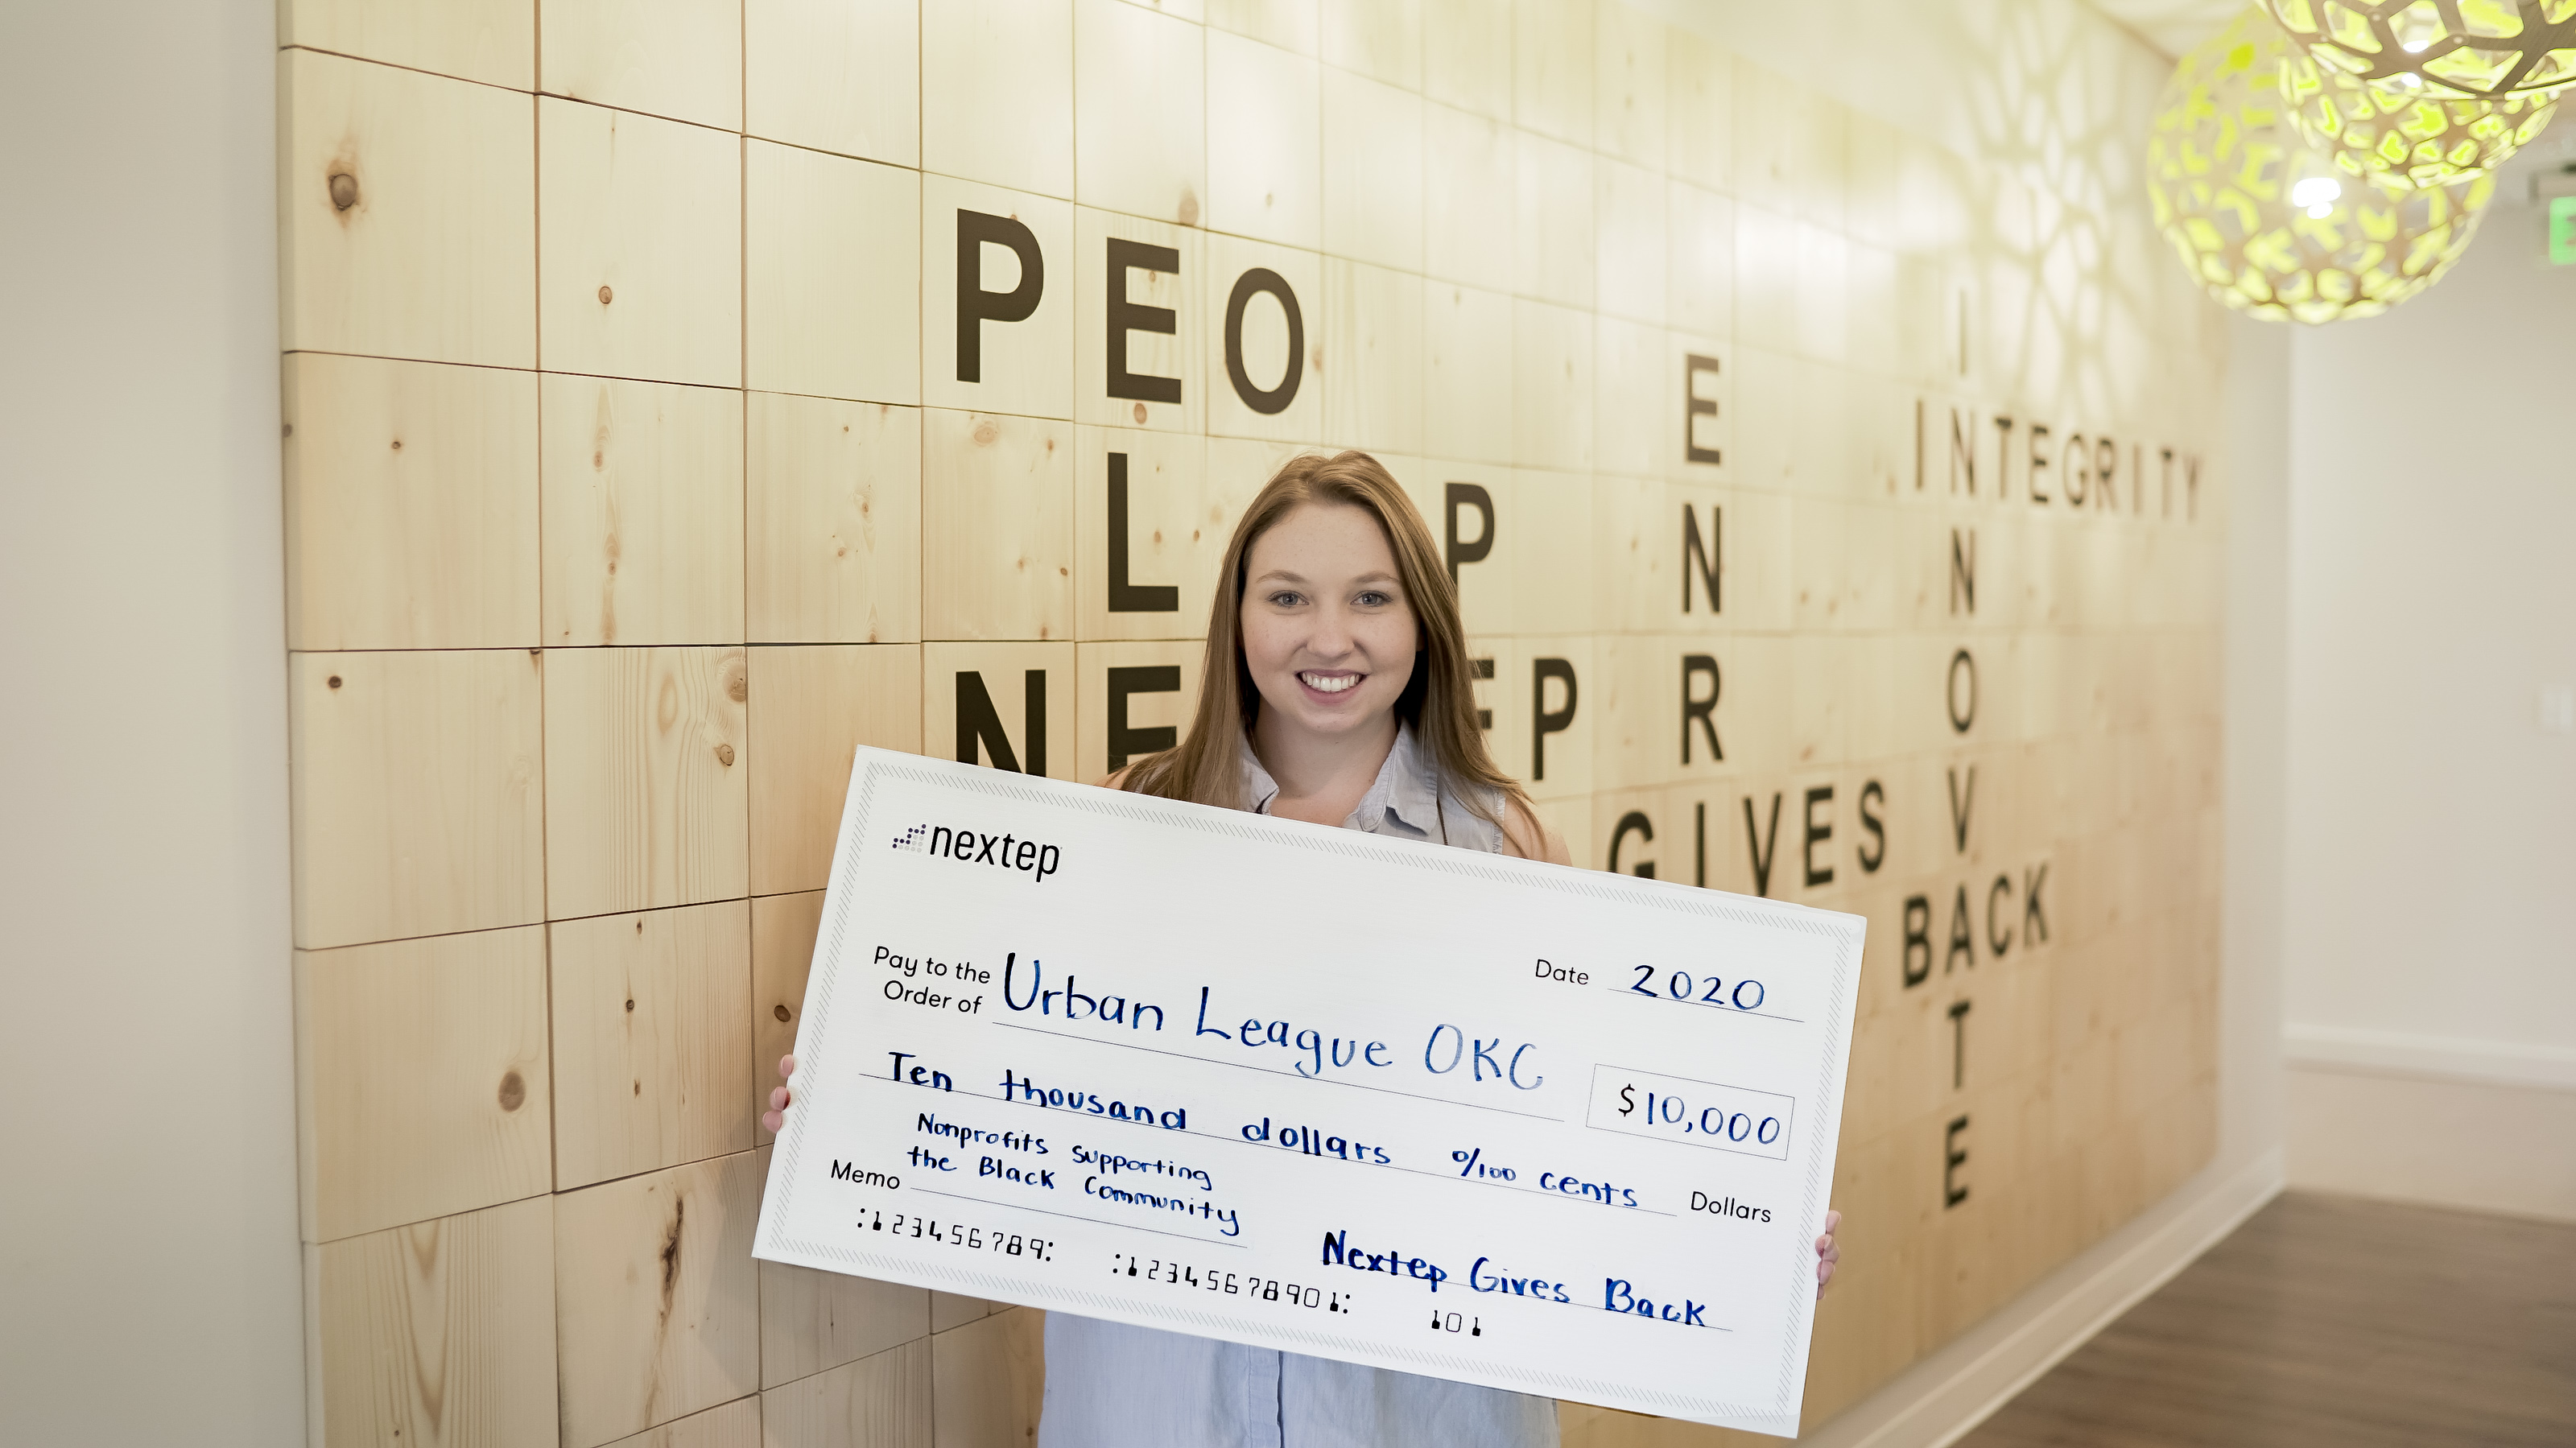 PEO
L
P
NE
EP
ENR
GIVES
BACK
INTEGRITY
INNOVATE
nextep
Date 2020
Pay to the
Order of Urban League OKC
$10,000
Ten thousand dollars 0/100 cents Dollars
Nonprofits supporting
Memo the Black Community
Nextep Gives Back
:123456789: :12345678901: 101